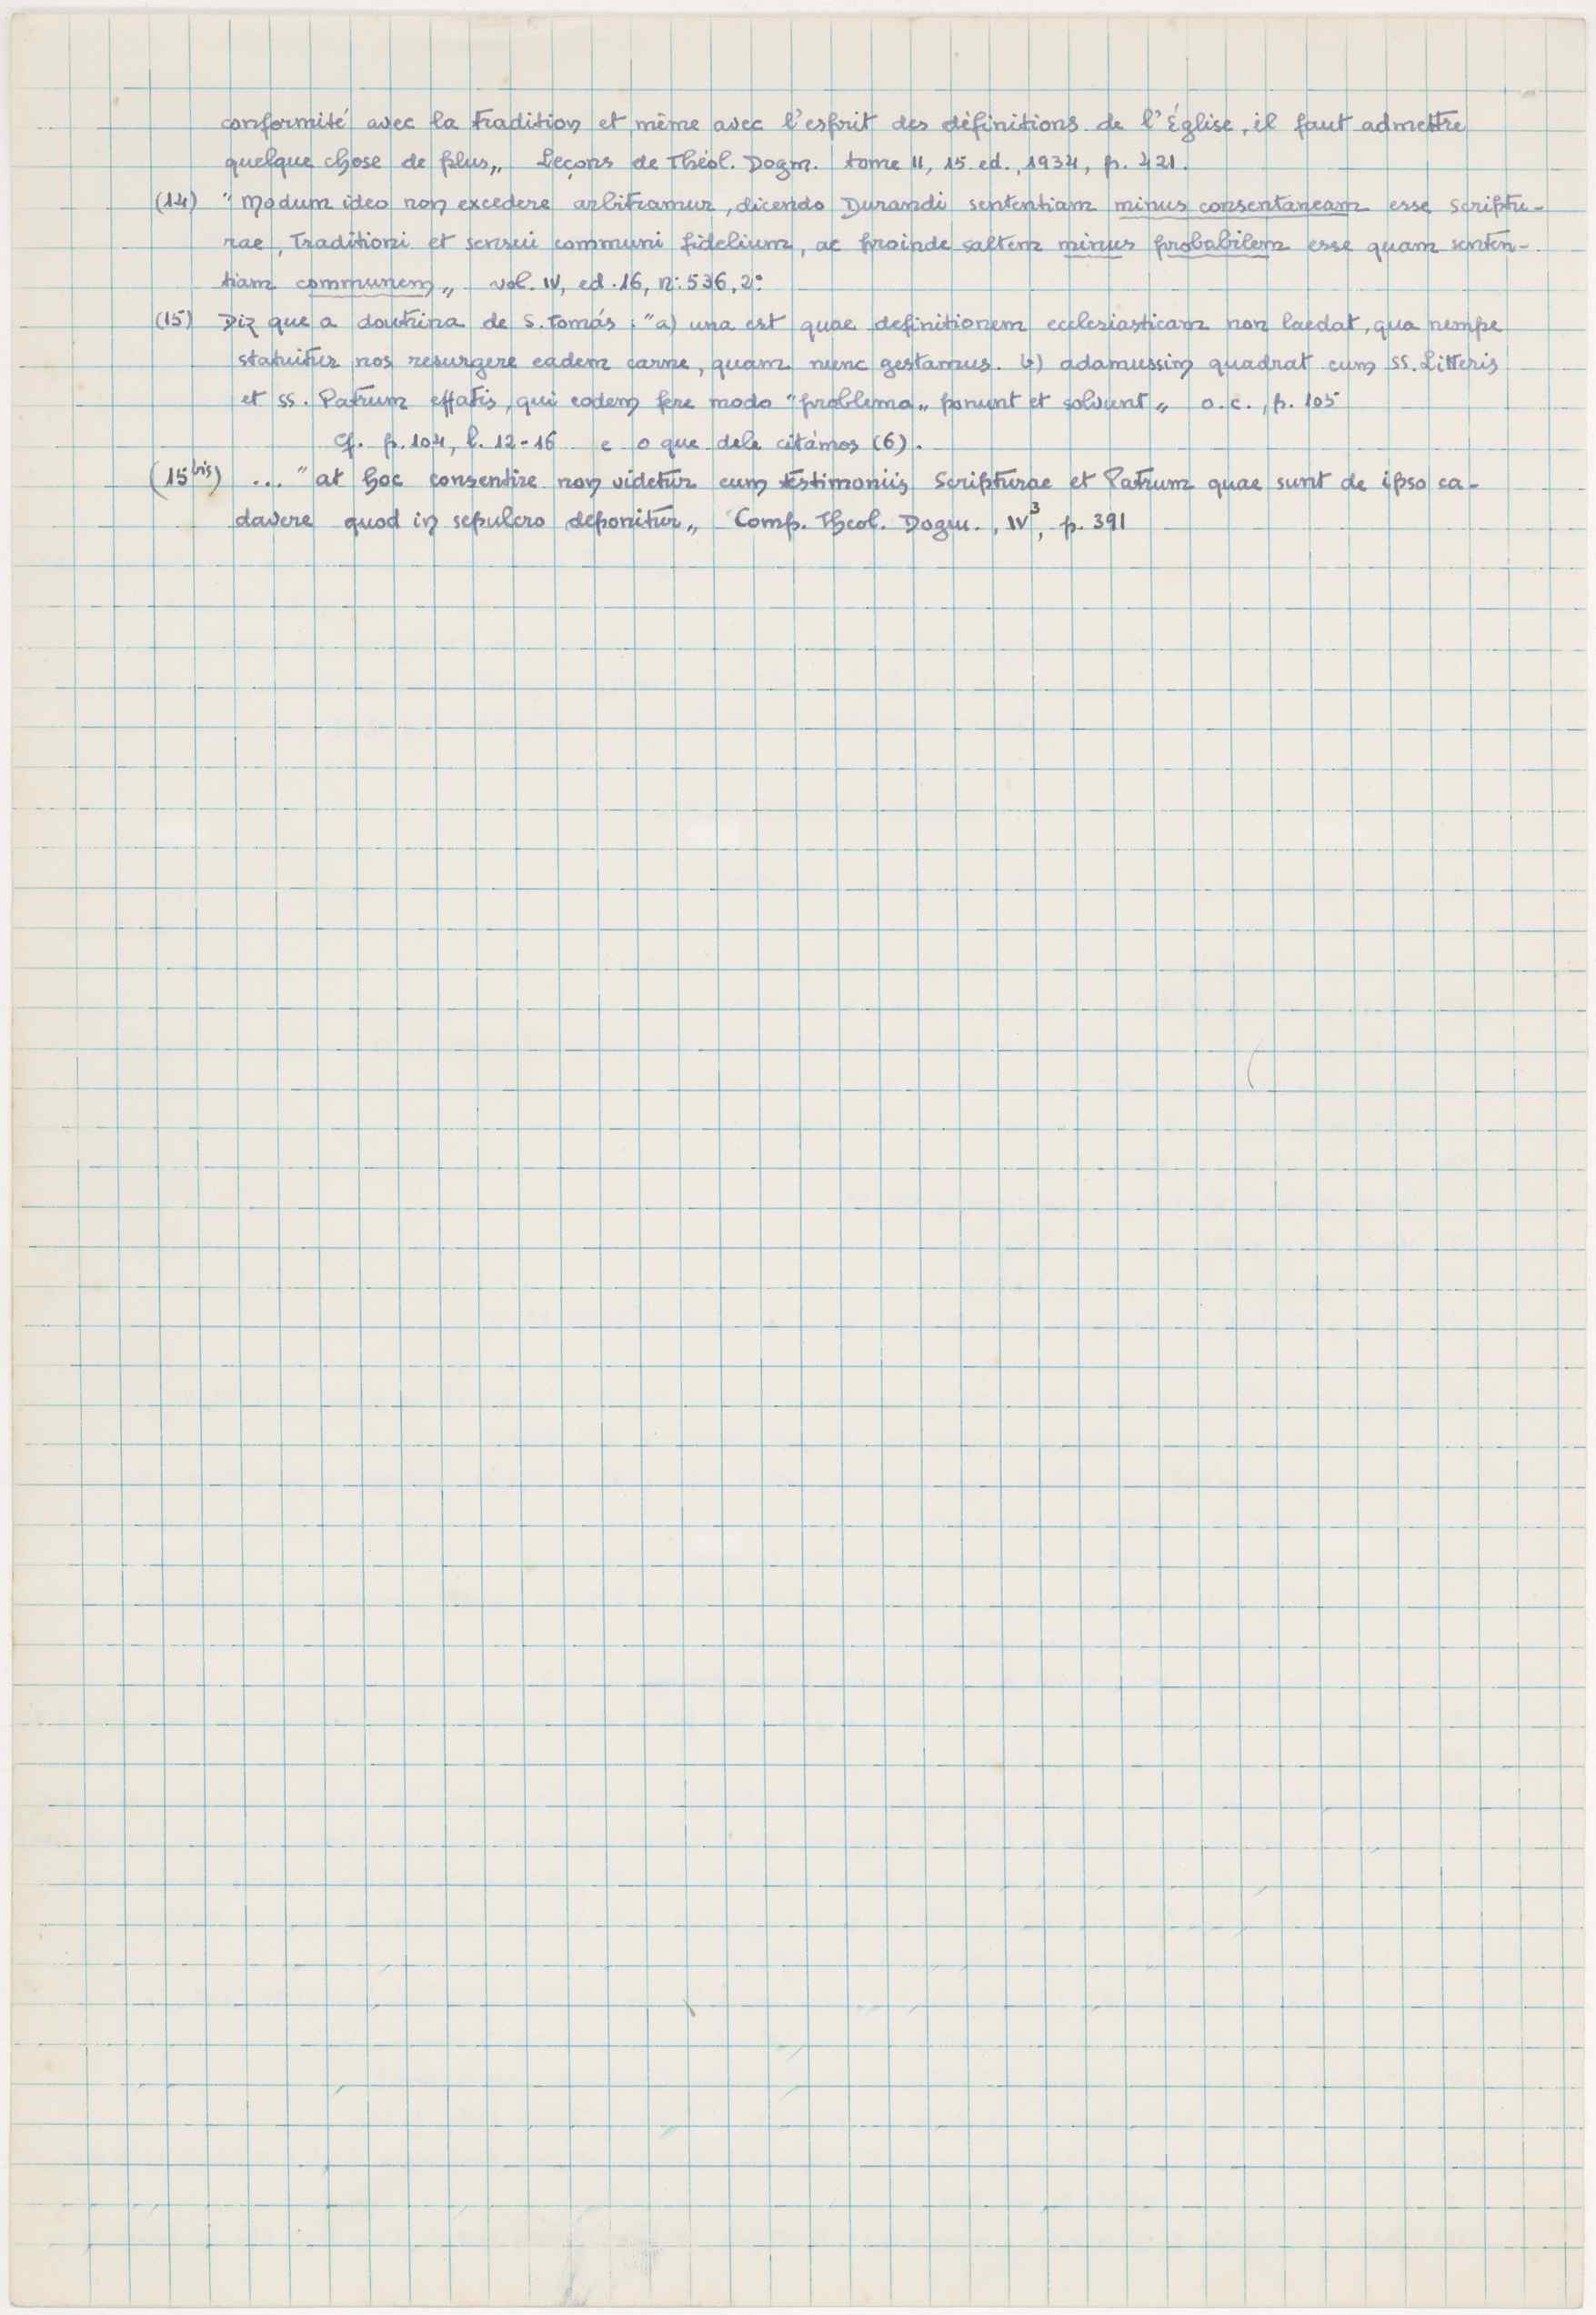 conformité avec la tradition et même avec l'esprit des définitions de l'Église, il faut admettre
quelque chose de plus„ Leçons de Théol. Dogm. tome II, 15 ed., 1934, p. 421.
(14) "Modum ideo non excedere arbitramur, dicendo Durandi sententiam minus consentaneam esse Scriptu-
rae, Traditioni et sensui communi fidelium, ac proinde saltem minus probabilem esse quam senten-
tiam communem„ vol. IV, ed. 16, n: 536, 2º
(15) Diz que a doutrina de S. Tomás: "a) una est quae definitionem ecclesiasticam non laedat, qua nempe
statuitur nos resurgere eadem carne, quam nunc gestamus. b) adamussim quadrat cum SS. Litteris
et SS. Patrum effatis, qui eodem fere modo "problema„ ponunt et solvunt„ o.c., p. 105
Cf. p. 104, l. 12-16 e o que dele citámos (6).
(15 bis) ... "at hoc consentire non videtur cum testimoniis Scripturae et Patrum quae sunt de ipso ca-
davere quod in sepulcro deponitur„ Comp. Theol. Dogm., IV³, p. 391